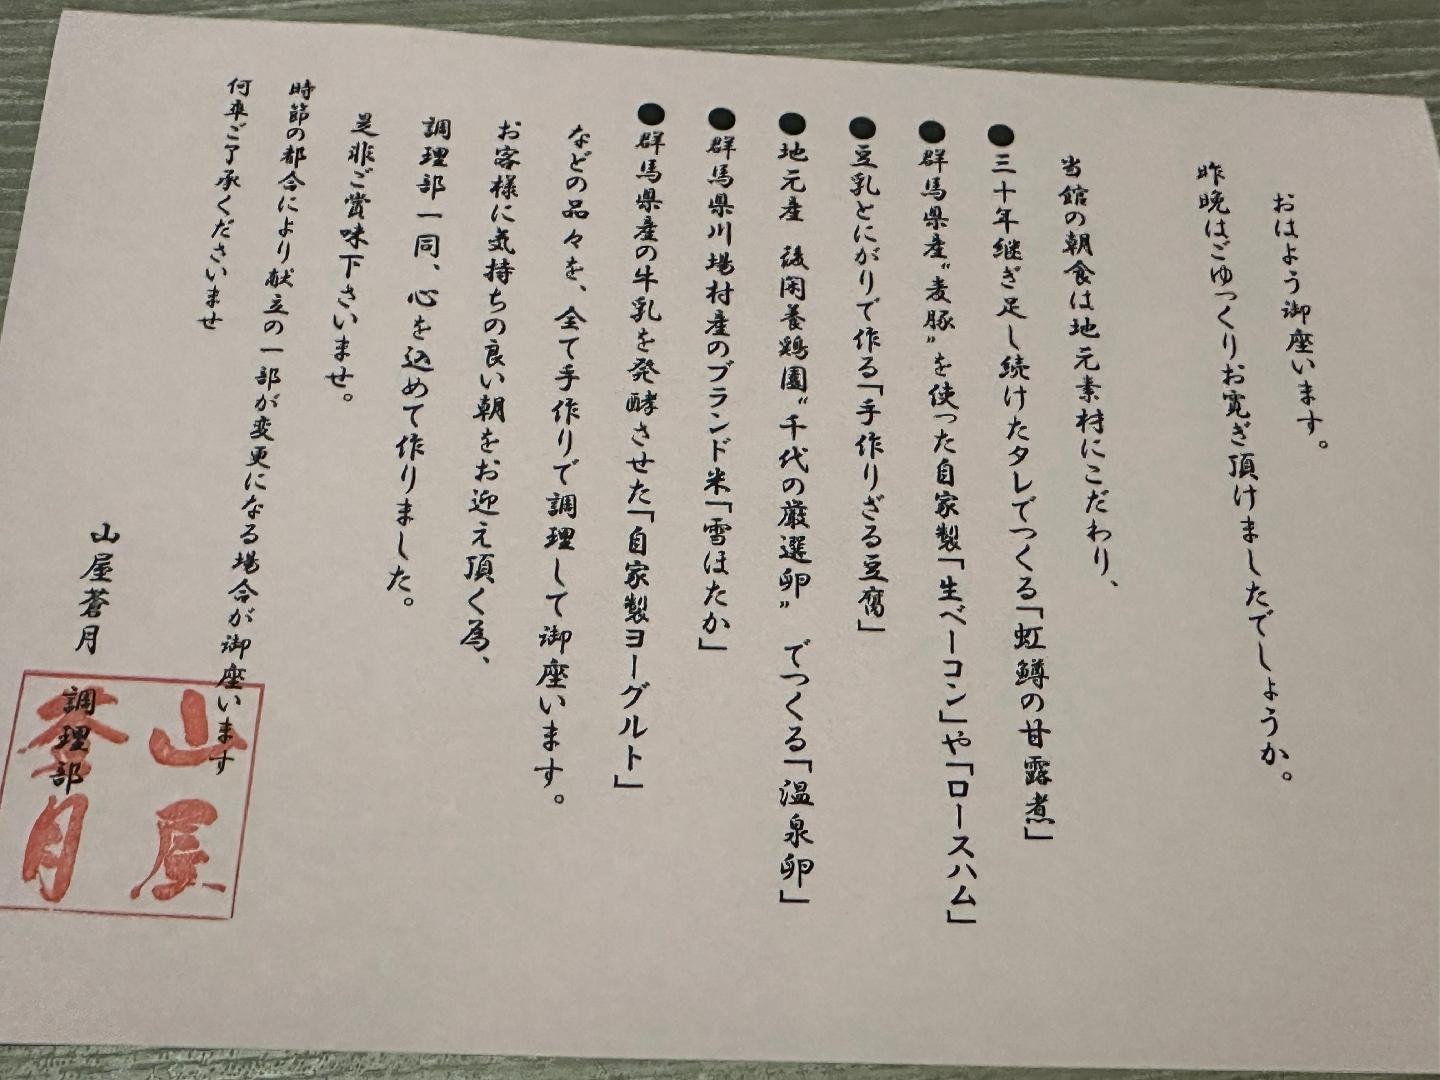 おはよう御座います。
昨晩はごゆっくりお寛ぎ頂けましたでしょうか。
当館の朝食は地元素材にこだわり、
●三十年継ぎ足し続けたタレでつくる「虹鱒の甘露煮」
●群馬県産〝麦豚〟を使った自家製「生ベーコン」や「ロースハム」
●豆乳とにがりで作る「手作りざる豆腐」
●地元産 後閑養鶏園〝千代の厳選卵〟でつくる「温泉卵」
●群馬県川場村産のブランド米「雪ほたか」
●群馬県産の牛乳を発酵させた「自家製ヨーグルト」
などの品々を、全て手作りで調理して御座います。
お客様に気持ちの良い朝をお迎え頂く為、
調理部一同、心を込めて作りました。
是非ご賞味下さいませ。
時節の都合により献立の一部が変更になる場合が御座います
何卒ご了承くださいませ
山屋蒼月 調理部
山屋
蒼月